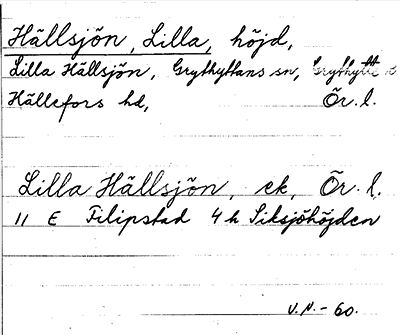 Hällsjön, Lilla, höjd,
Lilla Hällsjön, Grythyttans sn,
Hällefors hd, Ör. l.
Lilla Hällsjön, ek, Ör. l.
11 E Filipstad 4 h Siksjöhöjden
V.N.-60.